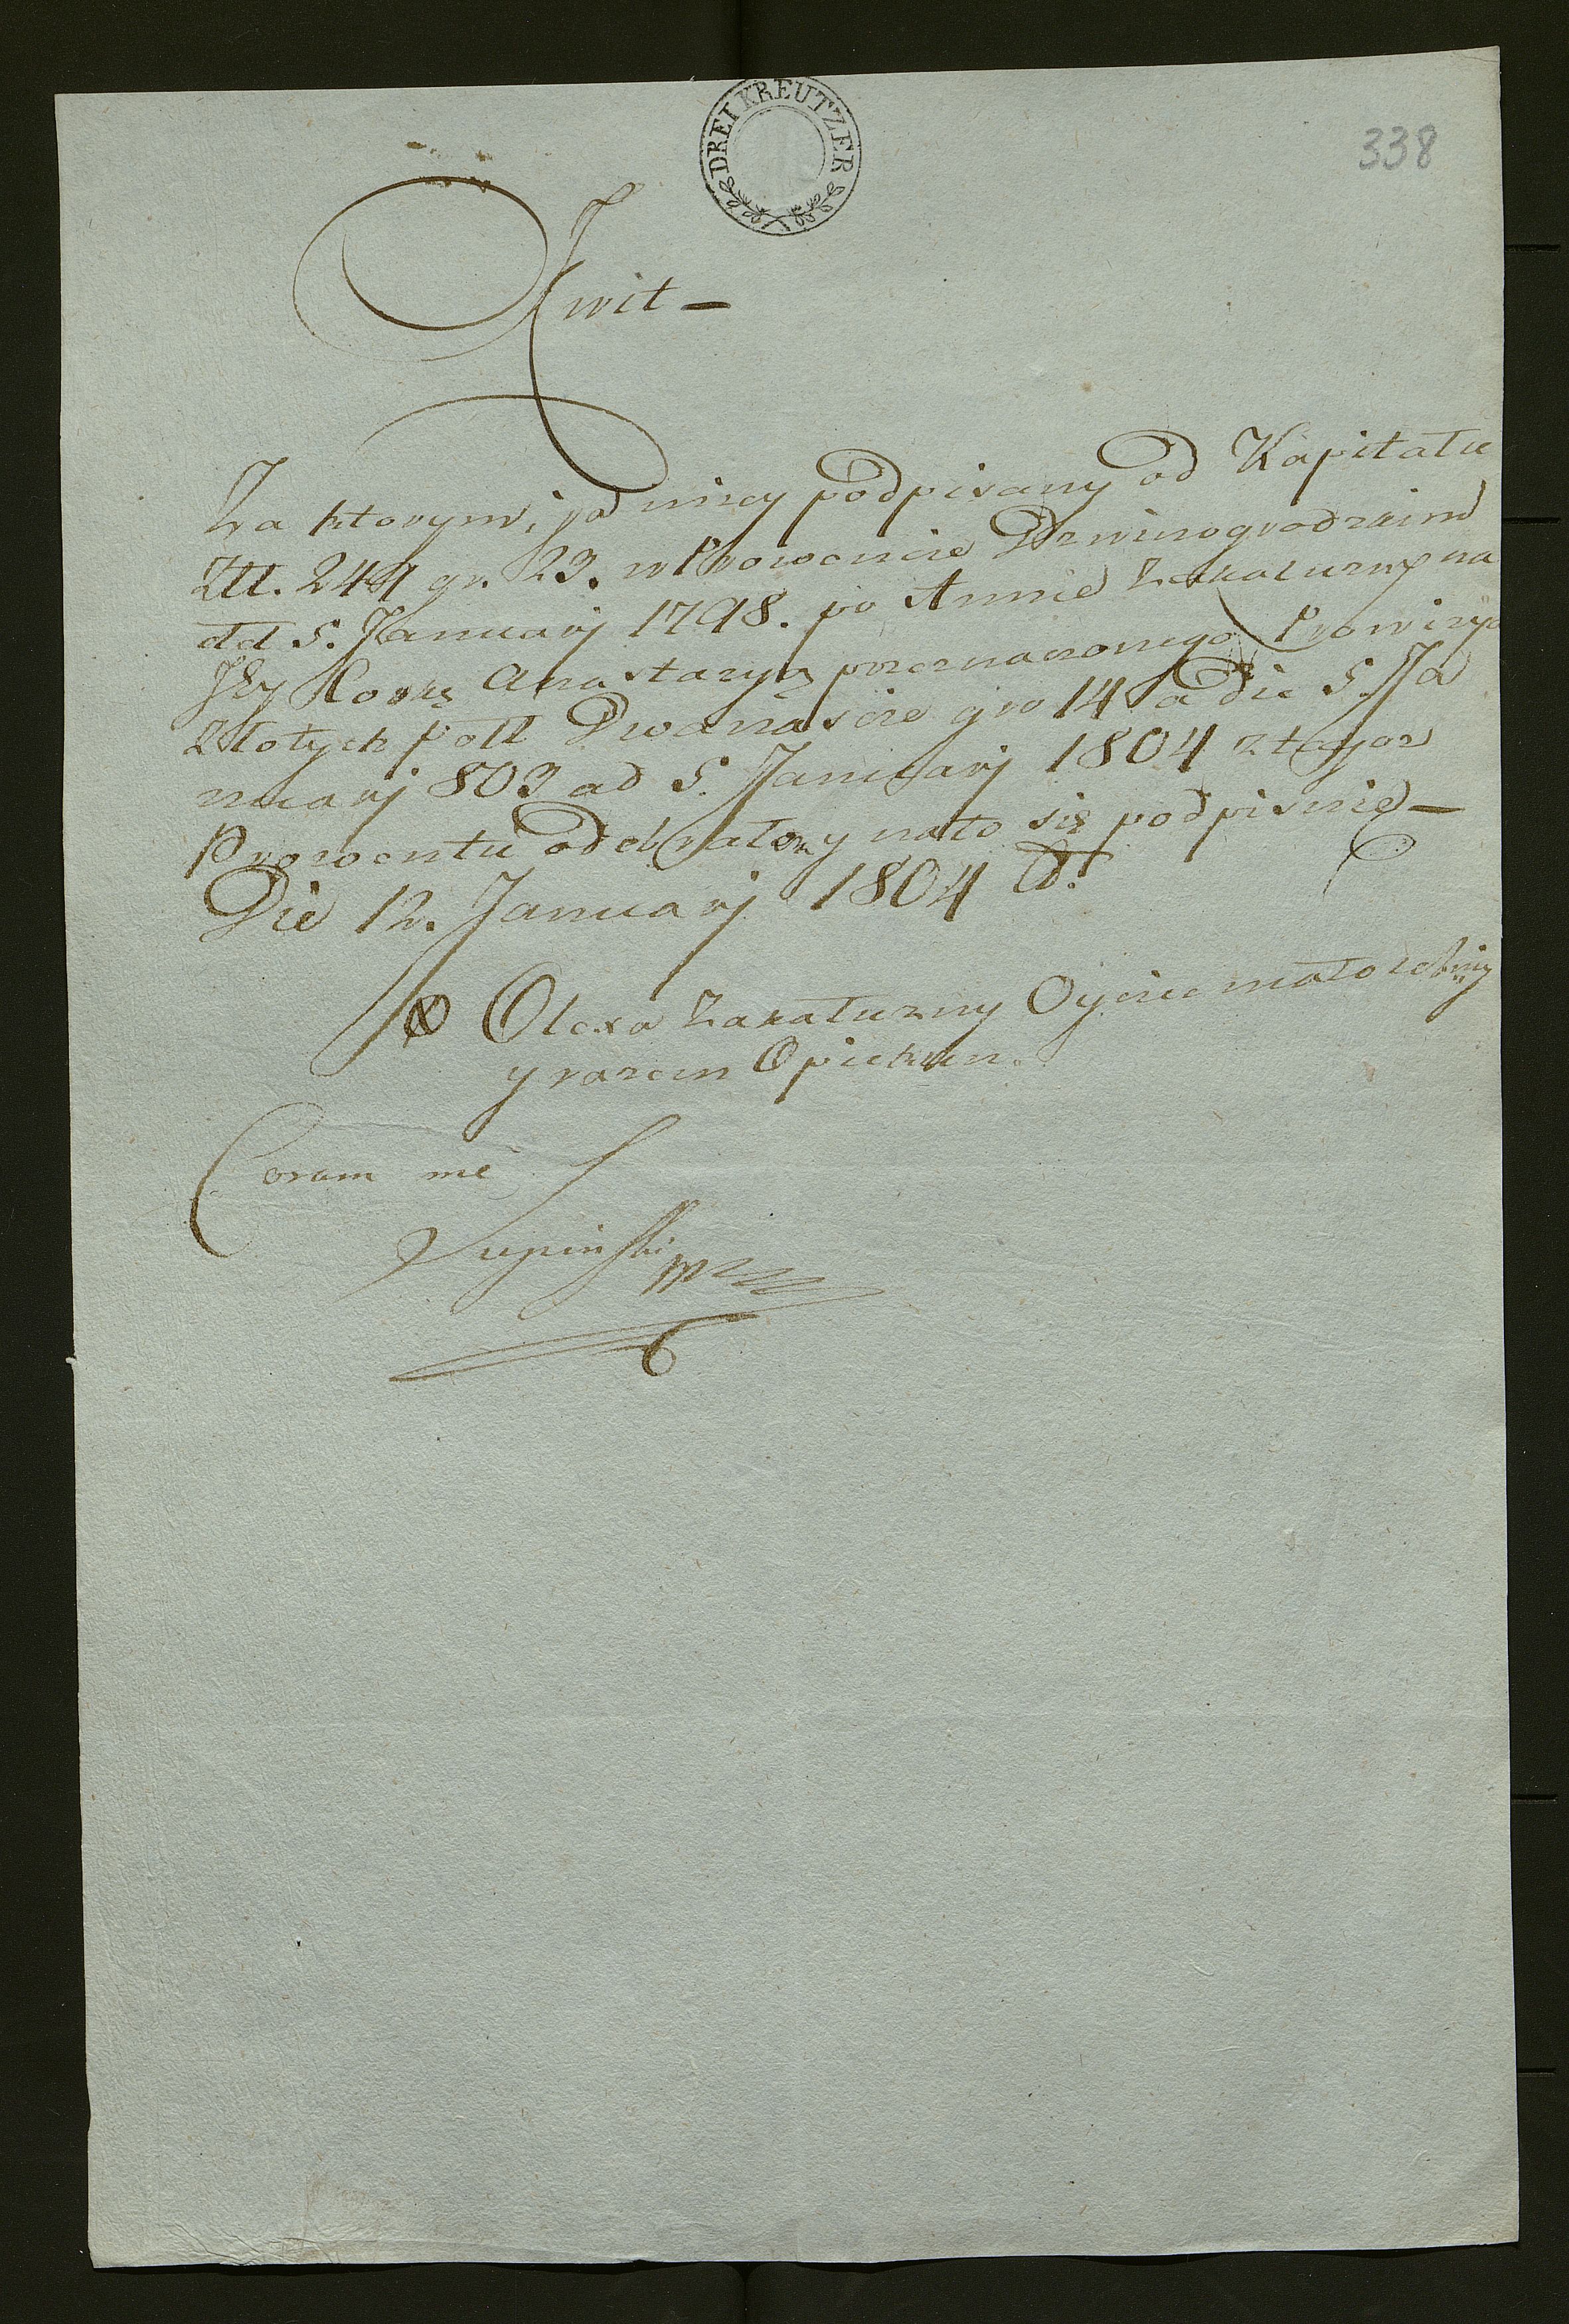 DREI KREUTZER
338
Kwit –
Za ktorym, ja nizey podpisany od Kapitału
Złł. 244 gr. 29. w Prowencie Dzwinogrodzkim
dd 5. Januarij 1798. po Annie Zakałuzny na
Jey Corkę Anastazyą przeznaczonego Prowizyą
Złotych poll Dwanaście gro 14 a Die 5. Ja
nuarij 803 ad 5. Januarij 1804 z tegoz
Prowentu odebrałem y nato się podpisuie –
Die 12. Januarij 1804 Ao.
Olexa Zakałuzny Oyciec małoletniey
y razem Opiekun.
Coram me
Łupinski mp